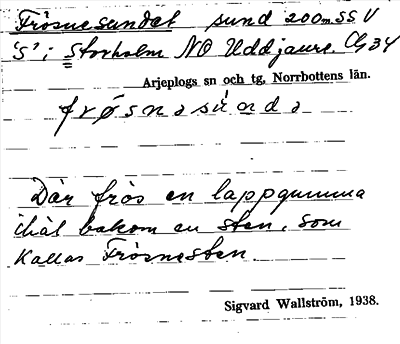 Frösnesundet sund 200m SSV
'S' i Storholm NO Uddjaure. Cg34
Arjeplogs sn och tg, Norrbottens län.
frøsnəsúndə
Där frös en lappgumma
ihäl bakom en sten, som
kallas Frösnesten.
Sigvard Wallström, 1938.